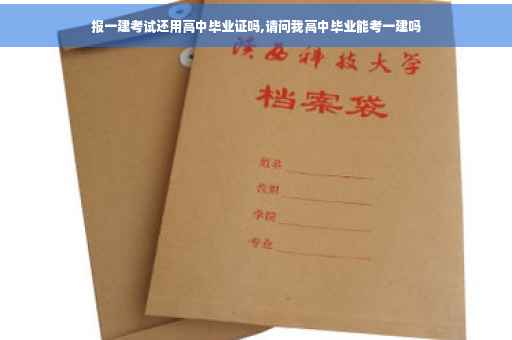 报一建考试还用高中毕业证吗,请问我高中毕业能考一建吗
陕西科技大学
档案袋
姓名
性别
学院
专业